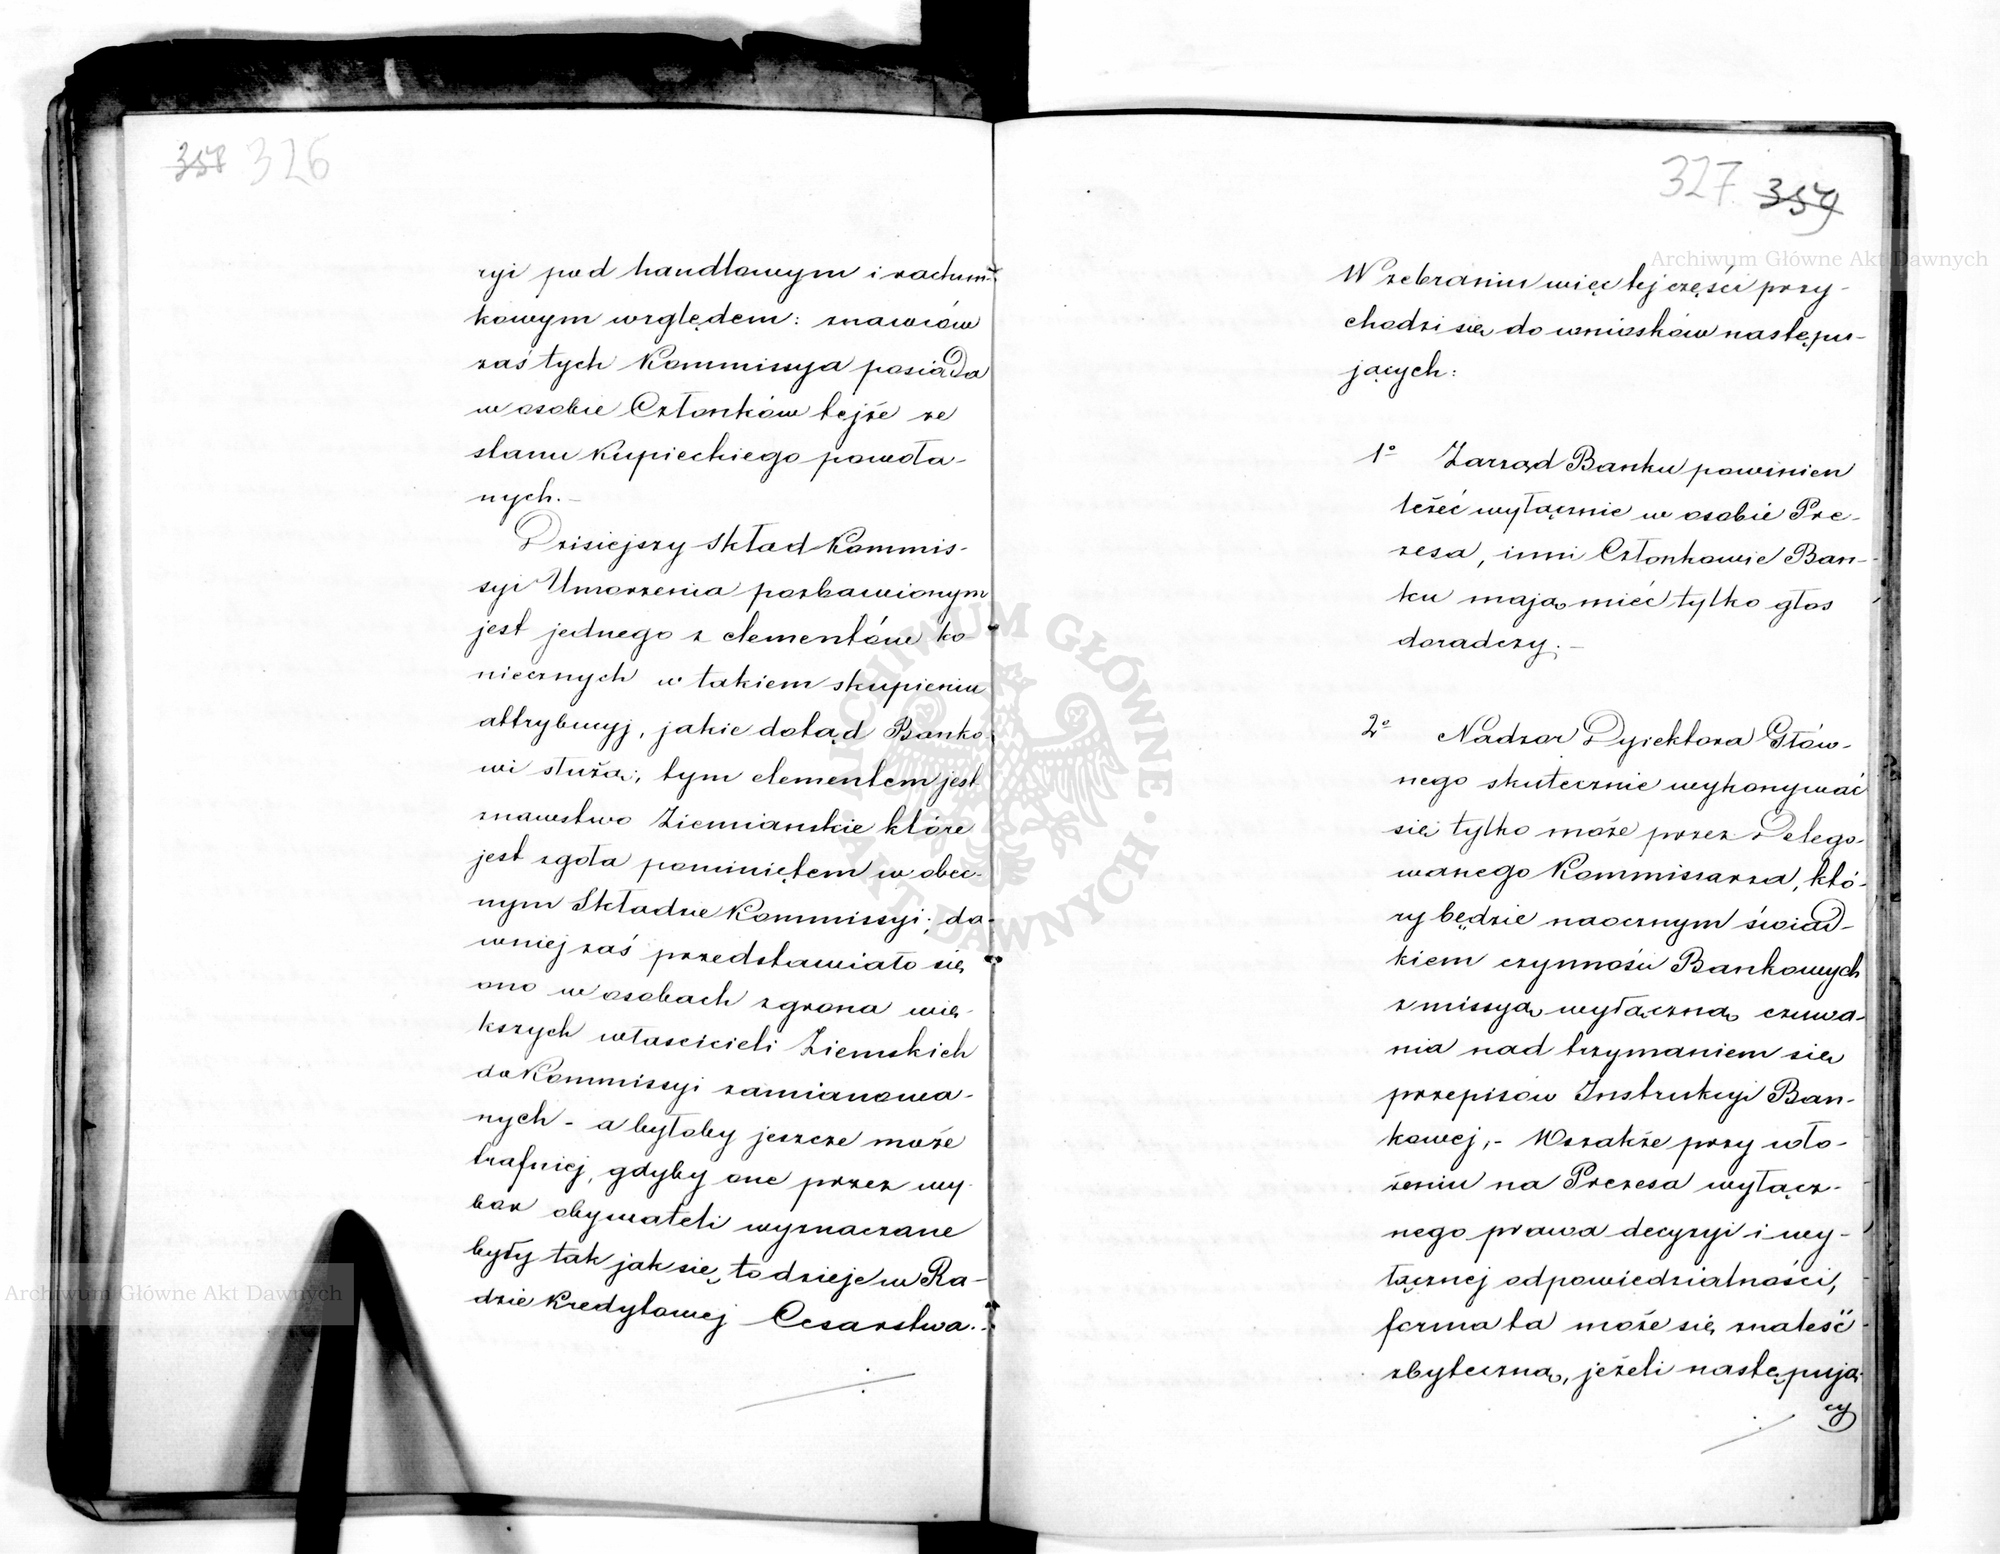 358 326
ryi pod handlowym i rachun-
kowym względem: znawców
zaś tych Kommissya posiada
w osobie Członków tejże ze
stanu Kupieckiego powoła-
nych.-
Dzisiejszy skład Kommis-
syi Umorzenia pozbawionym
jest jednego z elementów ko-
niecznych w takiem skupieniu
attrybucyj, jakie dotąd Banko-
wi służą; tym elementem jest
znawstwo Ziemianskie które
jest zgoła pominiętem w obec-
nym Składzie Kommissyi; da-
wniej zaś przedstawiało się
ono w osobach zgrona wię-
kszych właścicieli Ziemskich
do Kommissyi zamianowa-
nych - a byłoby jeszcze może
trafniej, gdyby one przez wy-
bór obywateli wyznaczane
były tak jak się to dzieje w Ra-
dzie Kredytowej Cesarstwa.-
327 359
W zebraniu więc tej części przy-
chodzi się do wniosków następu-
jących:
1º Zarząd Banku powinien
leżeć wyłącznie w osobie Pre-
zesa, inni Członkowie Ban-
ku mają mieć tylko głos
doradczy;-
2º Nadzór Dyrektora Głów-
nego skutecznie wykonywać
się tylko może przez Delego-
wanego Kommissarza, któ-
ry będzie naocznym świad-
kiem czynności Bankowych
z missyą wyłączną czuwa-
nia nad trzymaniem się
przepisów Instrukcyi Ban-
kowej,- Wszakże przy wło-
żeniu na Prezesa wyłącz-
nego prawa decyzyi i wy-
łącznej odpowiedzialności,
forma ta może się znaleść
zbyteczną, jeżeli następują-
cy
Archiwum Główne Akt Dawnych
Archiwum Główne Akt Dawnych
ARCHIWUM GŁÓWNE AKT DAWNYCH